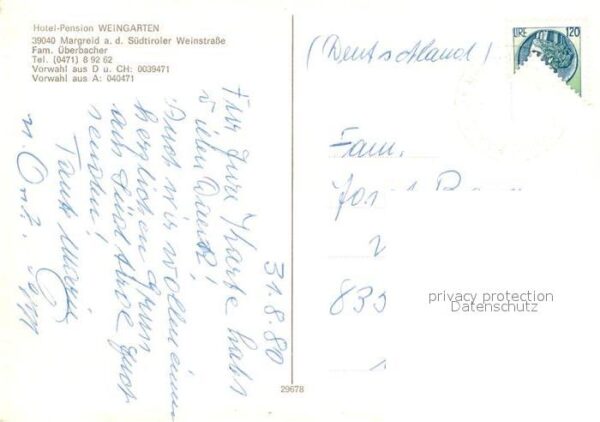 Hotel-Pension WEINGARTEN
39040 Margreid a. d. Südtiroler Weinstraße
Fam. Überbacher
Tel. (0471) 8 92 62
Vorwahl aus D u. CH: 0039471
Vorwahl aus A: 040471
31.8.80
Für Eure Karte habt
vielen Dank!
Auch wir wollen einen
herzlichen Gruss
aus Südtirol Euch
senden!
Tante
u.
LIRE 120
(Deutschland)
Fam.
833
privacy protection
Datenschutz
29678